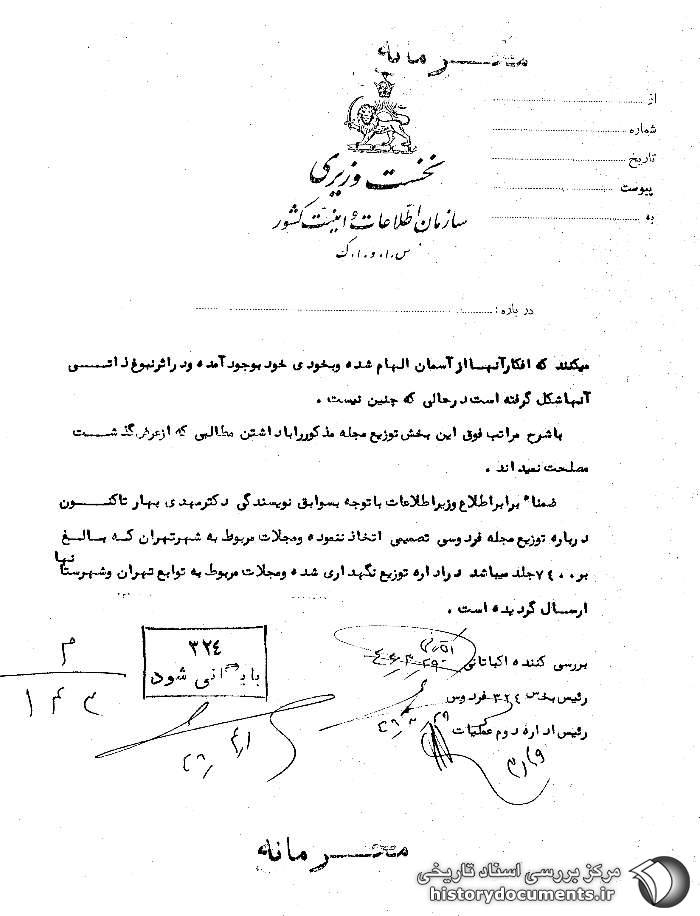 محرمانه
از
شماره
تاریخ
پیوست
به
نخست وزیری
سازمان اطلاعات و امنیت کشور
س.ا.و.ا.ک
درباره :
میکنند که افکارآنهااز آسمان الهام شده وبخودی خود بوجود آمده ودراثرنبوغ ذاتی
آنهاشکل گرفته است درحالی که چنین نیست .
باشرح مراتب فوق این بخش توزیع مجله مذکورراباداشتن مطالبی که ازعرض گذشت
مصلحت نمیداند .
ضمناً برابراطلاع وزیراطلاعات باتوجه بسوابق نویسندگی دکترمهدی بهار تاکنون
درباره توزیع مجله فردوسی تصمیمی اتخاذ ننموده ومجلات مربوط به شهرتهران که بالغ
بر ۷۴۰۰ جلد میباشد دراداره توزیع نگهداری شده ومجلات مربوط به توابع تهران وشهرستانها
ارسال گردیده است .
۳۲۴
بایگانی شود
م
۱۴۳
بررسی کننده اکباتانی
رئیس بخش ۳۲۴ فردوس
رئیس اداره دوم عملیات
محرمانه
مرکز بررسی اسناد تاریخی
historydocuments.ir